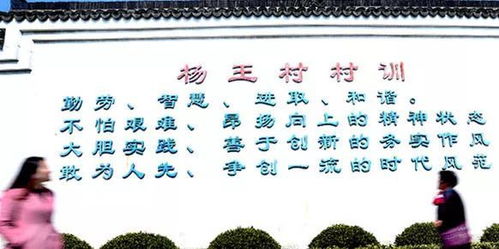 杨王村村训
勤劳、智慧、进取、和谐。
不怕艰难、昂扬向上的精神状态
大胆实践、善于创新的务实作风
敢为人先、争创一流的时代风范